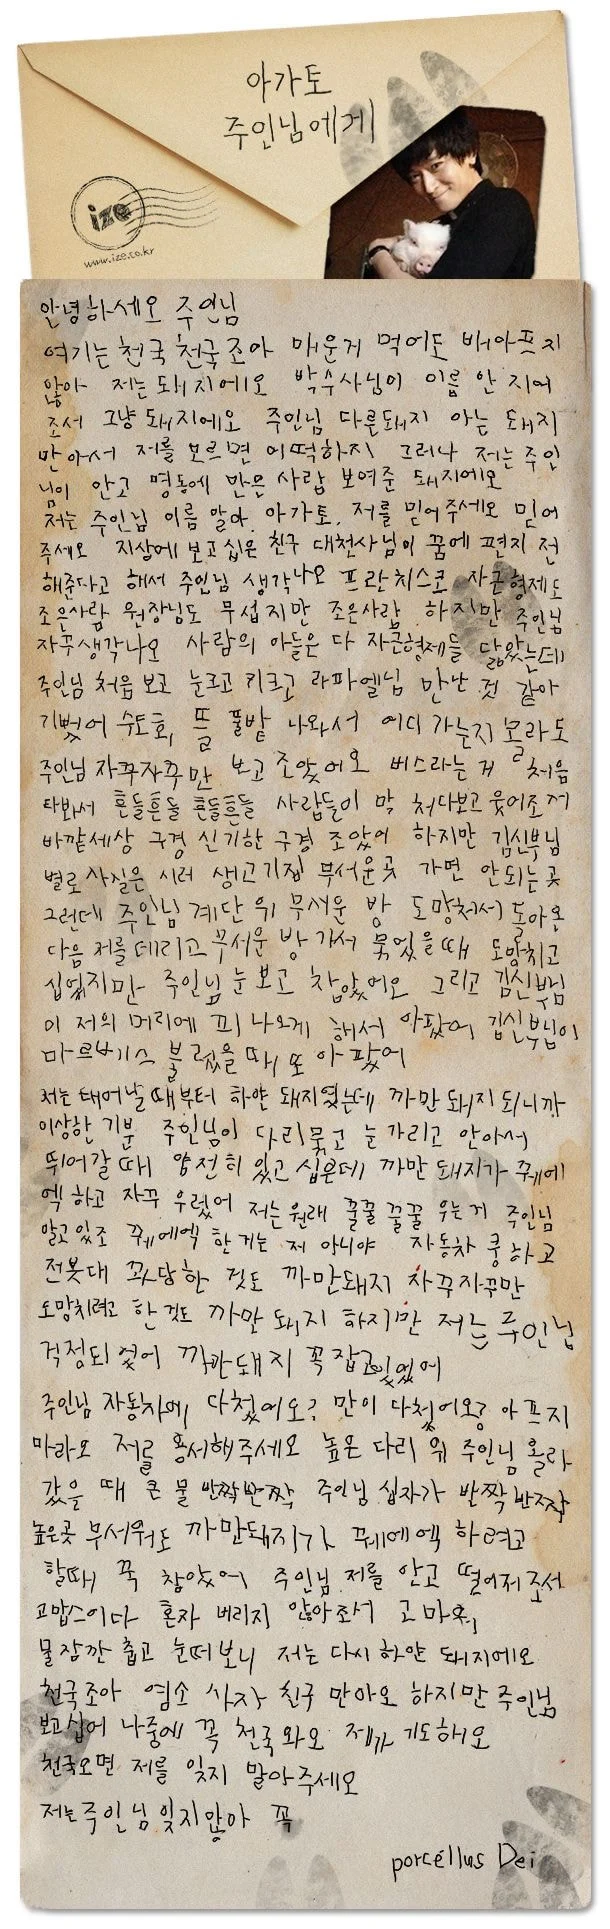 아가토
주인님에게
ize
www.ize.co.kr
안녕하세오 주인님
여기는 천국 천국조아 매운거 먹어도 배아프지
않아 저는 돼지에오 박수사님이 이름 안 지어
조서 그냥 돼지에오 주인님 다른돼지 아는 돼지
만아서 저를 모르면 어떡하지 그러나 저는 주인
님이 안고 명동에 만은 사람 보여준 돼지에오
저는 주인님 이름 알아. 아가토. 저를 믿어주세오 믿어
주세오 지상에 보고십은 친구 대천사님이 꿈에 편지 전
해준다고 해서 주인님 생각나오 프란치스코 자근형제도
조은사람 원장님도 무섭지만 조은사람 하지만 주인님
자꾸생각나오 사람의 아들은 다 자근형제들 닮았는데
주인님 처음 보고 눈크고 키크고 라파엘님 만난 것 같아
기뻤어 수도회, 뜰 풀밭 나와서 어디 가는지 몰라도
주인님 자꾸자꾸만 보고 조았어오 버스라는 거 처음
타봐서 흔들흔들 흔들흔들 사람들이 막 처다보고 웃어조서
바깥세상 구경 신기한 구경 조았어 하지만 김신부님
별로 사실은 시러 생고기집 무서운곳 가면 안되는곳
그런데 주인님 계단 위 무서운 방 도망처서 돌아온
다음 저를 데리고 무서운 방 가서 묶었을때 도망치고
십었지만 주인님 눈보고 참았어오 그리고 김신부님
이 저의 머리에 피 나오게 해서 아팠어 김신부님이
마르베스 불렀을 때 또 아팠어
저는 태어날때부터 하얀 돼지였는데 까만 돼지 되니까
이상한 기분 주인님이 다리묶고 눈가리고 안아서
뛰어갈 때 얌전히 있고 십은데 까만 돼지가 꾸에에
엑 하고 자꾸 우렀어 저는 원래 꿀꿀 꿀꿀 우는거 주인님
알고있조 꾸에에엑 한거는 저 아니야 자동차 쿵하고
전봇대 꽈당한 것도 까만돼지 자꾸자꾸만
도망치려고 한것도 까만 돼지 하지만 저는 주인님
걱정되었어 까만돼지 꼭 잡고있었어
주인님 자동차에 다쳤어오? 만이 다쳤어오? 아프지
마라오 저를 용서해주세오 높은 다리 위 주인님 올라
갔을 때 큰 물 반짝반짝 주인님 십자가 반짝 반짝
높은곳 무서워도 까만돼지가 꾸에에엑 하려고
할때 꾹 참았어 주인님 저를 안고 떨어저조서
고맙스이다 혼자 버리지 않아조서 고마워
물 잠깐 춥고 눈떠보니 저는 다시 하얀 돼지에오
천국조아 염소 사자 친구 만아오 하지만 주인님
보고십어 나중에 꼭 천국와오 제가 기도해오
천국오면 저를 잊지 말아주세오
저는 주인님 잊지않아 꼭
porcéllus Dei